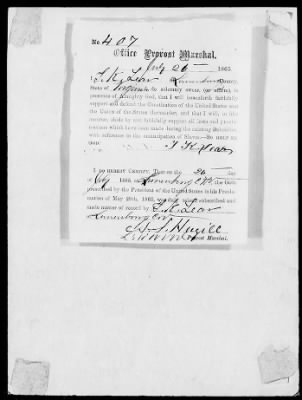 No. 407
Office Provost Marshal,
July 26 1865.
I, T. K. Lear Lunenburg County,
State of Virginia do solemnly swear, (or affirm) in
presence of Almighty God, that I will henceforth faithfully
support and defend the Constitution of the United States and
the Union of the States thereunder, and that I will, in like
manner, abide by and faithfully support all laws and procla-
mations which have been made during the existing Rebellion
with reference to the emancipation of Slaves—So help me
GOD!
T K Lear
I DO HEREBY CERTIFY, That on the 26 day
of July 1865, at Lunenburg C. H. the Oath
prescribed by the President of the United States in his Procla-
mation of May 29th, 1865, was duly taken, subscribed and
made matter of record by T. K. Lear
Lunenburg Co
Provost Marshal.